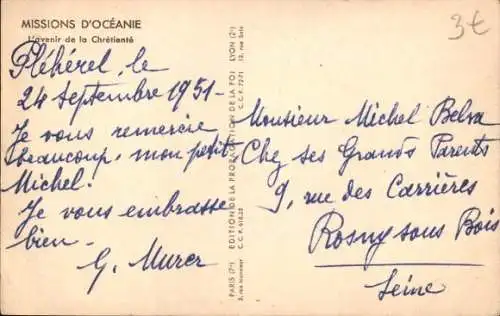 MISSIONS D'OCÉANIE
L'avenir de la Chrétienté
3€
Pléhérel, le
24 septembre 1951-
Je vous remercie
beaucoup, mon petit
Michel.
Je vous embrasse
bien -
G. Murer
PARIS (7e) EDITION DE LA PROPAGATION DE LA FOI LYON (2e)
Monsieur Michel Belva
Chez ses Grands Parents
9, rue des Carrières
Rosny sous Bois
Seine